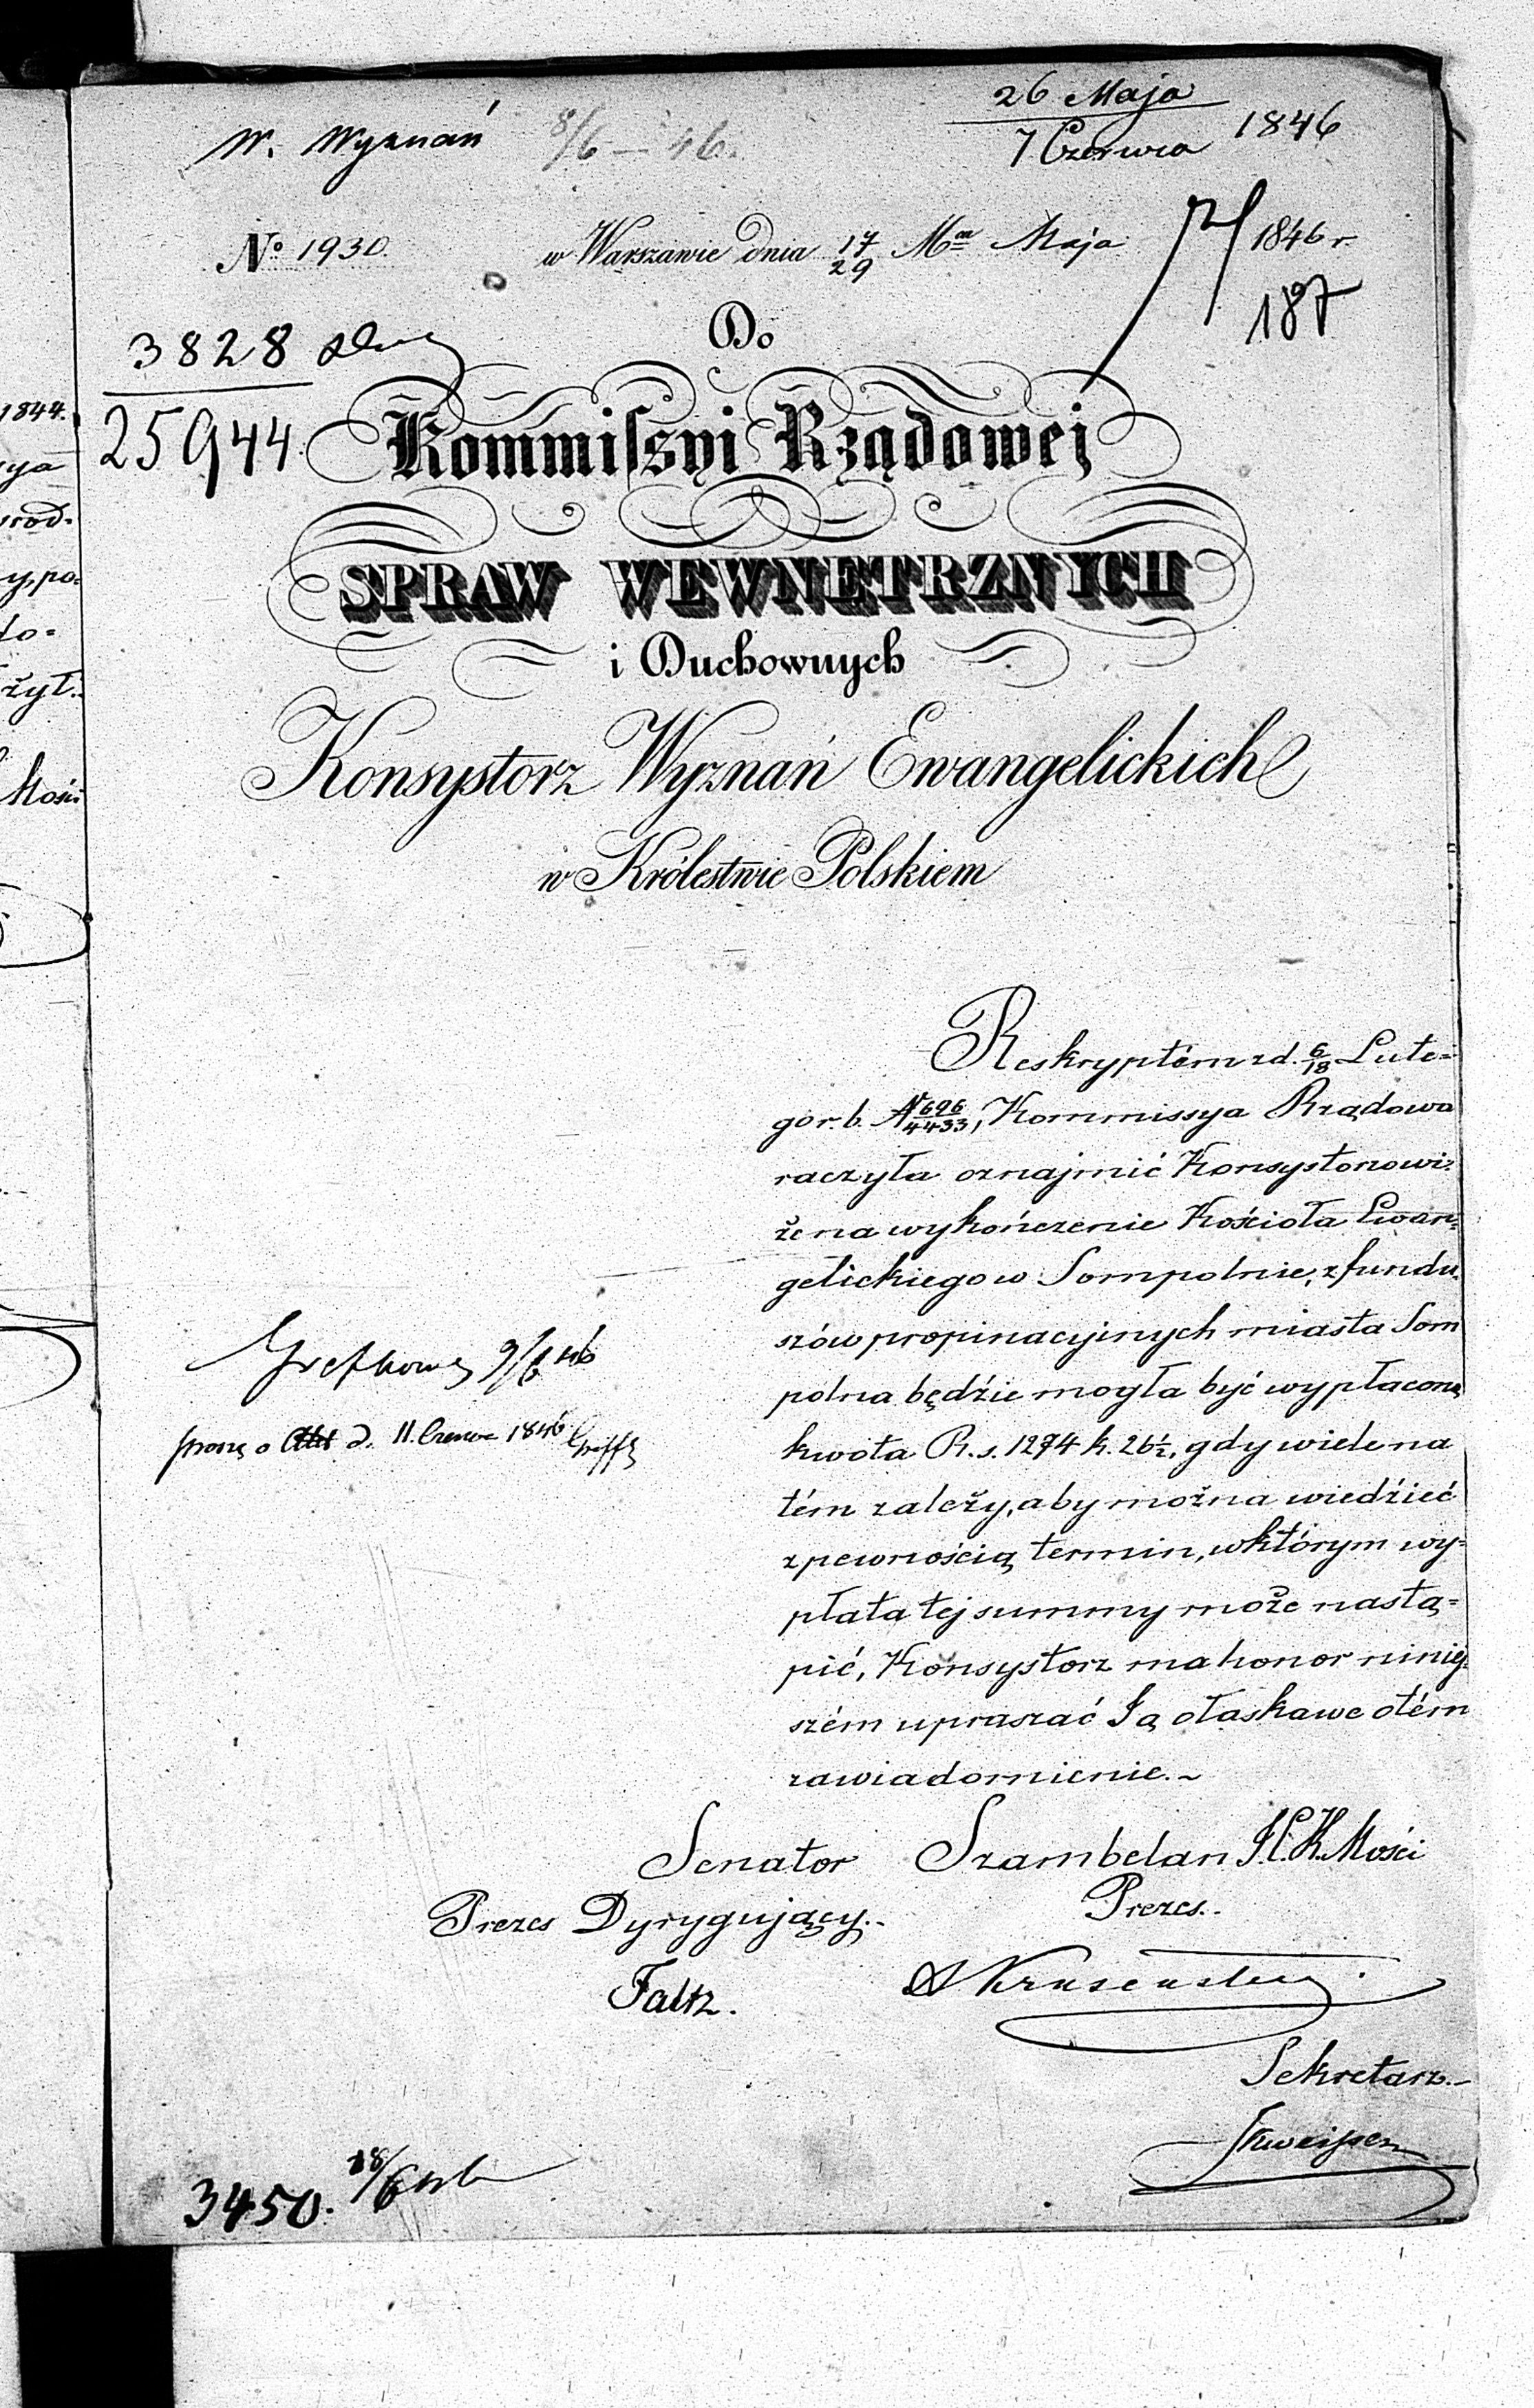 26 Maja
7 Czerwca 1846
W. Wyznań 8/6 – 46.
No 1930. w Warszawie dnia 17/29 Mca Maja 1846 r.
187
3828
25944
Do
Kommissyi Rządowej
SPRAW WEWNETRZNYCH
i Duchownych
Konsystorz Wyznań Ewangelickich
w Królestwie Polskiem
Reskryptém z d. 6/18 Lute=
go r. b. N 696/4433, Kommissya Rządowa
raczyła oznajmić Konsystorzowi:
że na wykończenie Kościoła Ewan=
gelickiego w Sompolnie, z fundu
szów propinacyjnych miasta Som
polna będzie mogła być wypłaconą
kwota R. s. 1274 k. 26½, gdy wiele na
tém zależy, aby można wiedzieć
z pewnością termin, w którym wy=
płata tej summy może nastą=
pić, Konsystorz ma honor niniej=
szém upraszać Ją o łaskawe o tém
zawiadomienie.~
9/6 46
proszę o Akt d. 11. Czerwca 1846
Senator Szambelan J. C. K. Mości
Prezes Dyrygujący.. Prezes..
Faltz.
Sekretarz.-
3450. 18/6 46
1844.
rod=
y, po=
do=
żył.
Mości